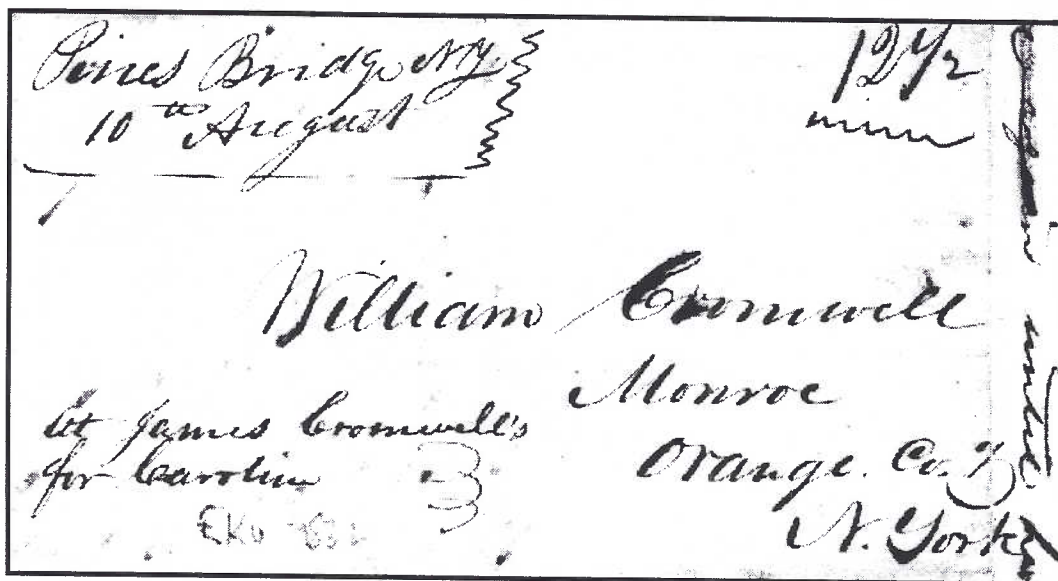 Pines Bridge NY.
10th August
12 1/2
William Cromwell
Monroe
Orange. Co.
N. York
At James Cromwell's
for Caroline
again
until